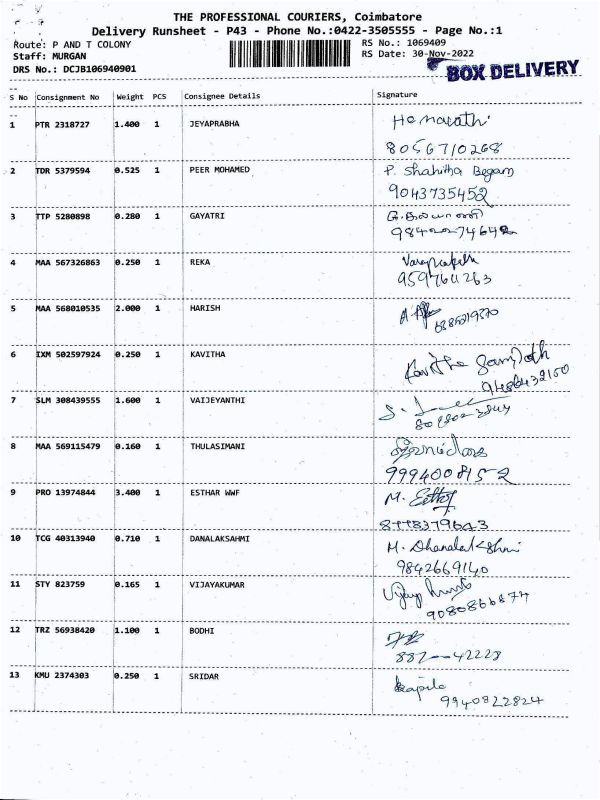 THE PROFESSIONAL COURIERS, Coimbatore
Delivery Runsheet - P43 - Phone No.:0422-3505555 - Page No.:1
Route: P AND T COLONY RS No.: 1069409
Staff: MURGAN RS Date: 30-Nov-2022
DRS No.: DCJB106940901 BOX DELIVERY
S No Consignment No Weight PCS Consignee Details Signature
1 PTR 2318727 1.400 1 JEYAPRABHA
8056710268
2 TDR 5379594 0.525 1 PEER MOHAMED P. Shahitha Begam
9043735452
3 TTP 5280898 0.280 1 GAYATRI
4 MAA 567326863 0.250 1 REKA
5 MAA 568010535 2.000 1 HARISH
6 IXM 502597924 0.250 1 KAVITHA Kavitha
9486432150
7 SLM 308439555 1.600 1 VAIJEYANTHI
8 MAA 569115479 0.160 1 THULASIMANI
9994008152
9 PRO 13974844 3.400 1 ESTHAR WWF M. Esther
8778379643
10 TCG 40313940 0.710 1 DANALAKSAHMI M. Dhanalakshmi
9842669140
11 STY 823759 0.165 1 VIJAYAKUMAR
9080866874
12 TRZ 56938420 1.100 1 BODHI
13 KMU 2374303 0.250 1 SRIDAR Kapila
9940822824